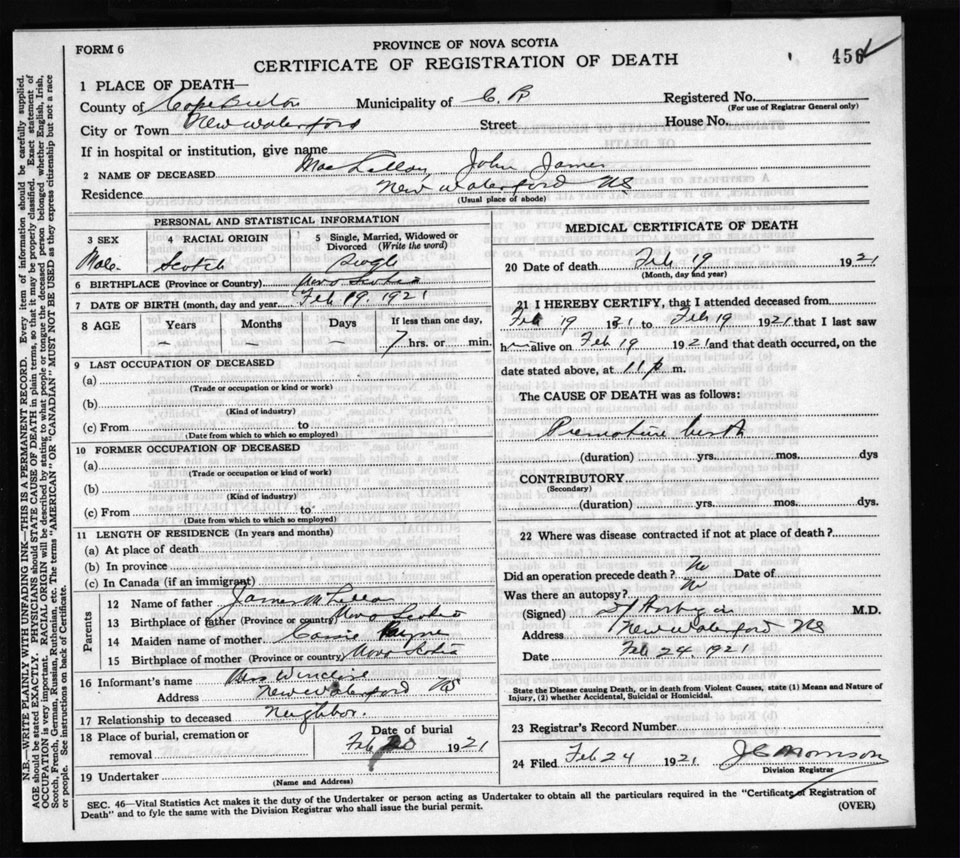 FORM 6
PROVINCE OF NOVA SCOTIA
CERTIFICATE OF REGISTRATION OF DEATH
456
1 PLACE OF DEATH—
County of Cape Breton Municipality of C. B Registered No.
(For use of Registrar General only)
City or Town New Waterford Street House No.
If in hospital or institution, give name
2 NAME OF DECEASED MacLellan, John James
Residence New Waterford NS
(Usual place of abode)
PERSONAL AND STATISTICAL INFORMATION
3 SEX 4 RACIAL ORIGIN 5 Single, Married, Widowed or Divorced (Write the word)
Male Scotch Single
6 BIRTHPLACE (Province or Country) Nova Scotia
7 DATE OF BIRTH (month, day and year) Feb 19. 1921
8 AGE Years Months Days If less than one day,
– – – 7 hrs. or min.
9 LAST OCCUPATION OF DECEASED
(a)
(Trade or occupation or kind or work)
(b)
(Kind of industry)
(c) From to
(Date from which to which so employed)
10 FORMER OCCUPATION OF DECEASED
(a)
(Trade or occupation or kind of work)
(b)
(Kind of industry)
(c) From to
(Date from which to which so employed)
11 LENGTH OF RESIDENCE (In years and months)
(a) At place of death
(b) In province
(c) In Canada (if an immigrant)
Parents
12 Name of father James McLellan
13 Birthplace of father (Province or country) Nova Scotia
14 Maiden name of mother Cassie Payne
15 Birthplace of mother (Province or country) Nova Scotia
16 Informant's name Mrs
Address New Waterford NS
17 Relationship to deceased Neighbor.
18 Place of burial, cremation or Date of burial
removal Feb 20 1921
19 Undertaker
(Name and Address)
MEDICAL CERTIFICATE OF DEATH
20 Date of death Feb 19 1921
(Month, day and year)
21 I HEREBY CERTIFY, that I attended deceased from
Feb 19 1921 to Feb 19 1921 that I last saw
h alive on Feb 19 1921 and that death occurred, on the
date stated above, at 11 p m.
The CAUSE OF DEATH was as follows:
Premature birth
(duration) yrs. mos. dys
CONTRIBUTORY
(Secondary)
(duration) yrs. mos. dys.
22 Where was disease contracted if not at place of death?
Did an operation precede death? No Date of
Was there an autopsy? No
(Signed) M.D.
Address New Waterford NS
Date Feb 24. 1921
State the Disease causing Death, or in death from Violent Causes, state (1) Means and Nature of
Injury, (2) whether Accidental, Suicidal or Homicidal.
23 Registrar's Record Number
24 Filed Feb 24 1921 Morrison
Division Registrar
SEC. 46—Vital Statistics Act makes it the duty of the Undertaker or person acting as Undertaker to obtain all the particulars required in the "Certificate of Registration of
Death" and to fyle the same with the Division Registrar who shall issue the burial permit. (OVER)
N.B.—WRITE PLAINLY WITH UNFADING INK—THIS IS A PERMANENT RECORD. Every item of information should be carefully supplied.
AGE should be stated EXACTLY. PHYSICIANS should STATE CAUSE OF DEATH in plain terms, so that it may be properly classified. Exact statement of
OCCUPATION is very important. RACIAL ORIGIN will be described by stating to what people or tongue the deceased person belonged whether English, Irish,
Scotch, French, German, Russian, Ruthenian, etc. The terms "AMERICAN" OR "CANADIAN" MUST NOT BE USED as they express citizenship but not a race
or people. See instructions on back of Certificate.